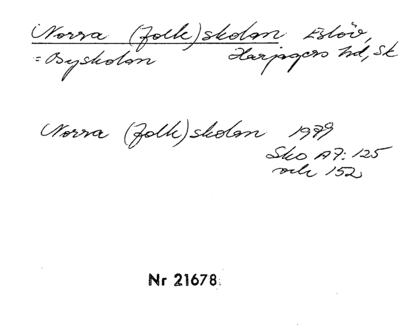 Norra (folk)skolan Eslöv,
= Byskolan Harjagers hd, Sk
Norra (folk)skolan 1979
Sko A7: 125
och 152
Nr 21678